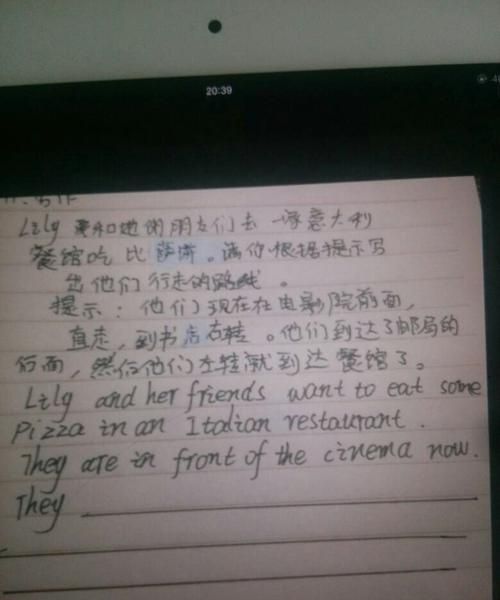 20:39
写作
Lily 要和她的朋友们去一家意大利
餐馆吃比萨饼。请你根据提示写
出他们行走的路线。
提示：他们现在在电影院前面，
直走，到书店右转。他们到达了邮局的
后面，然后他们左转就到达餐馆了。
Lily and her friends want to eat some
pizza in an Italian restaurant.
They are in front of the cinema now.
They